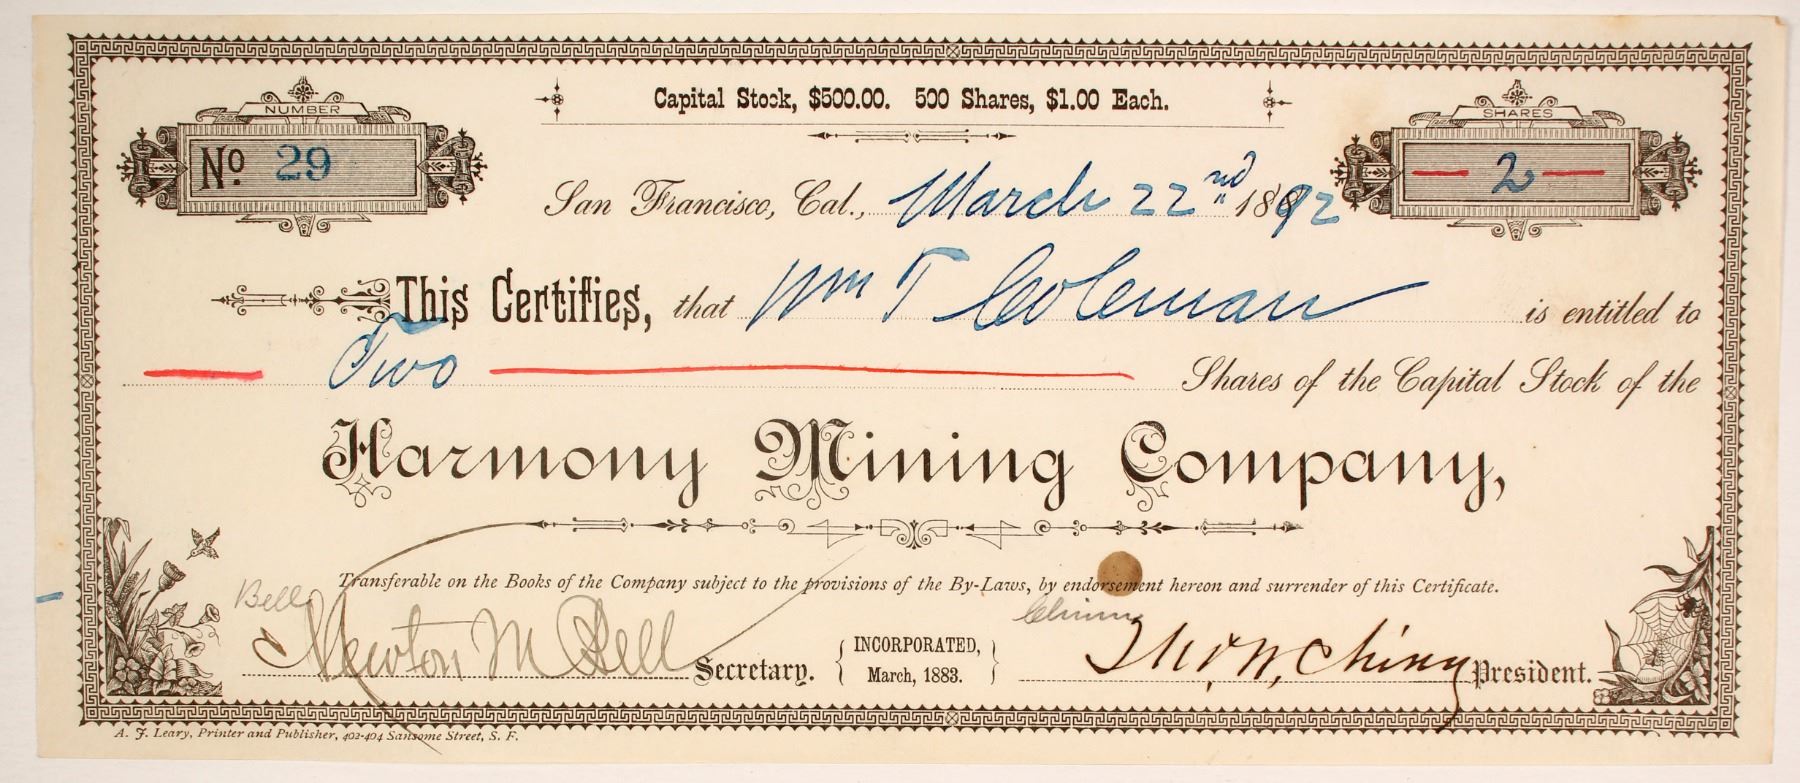 Capital Stock, $500.00. 500 Shares, $1.00 Each.
NUMBER
No. 29
SHARES
2
San Francisco, Cal., March 22nd 1892
This Certifies, that Wm T Coleman is entitled to
Two Shares of the Capital Stock of the
Harmony Mining Company,
Transferable on the Books of the Company subject to the provisions of the By-Laws, by endorsement hereon and surrender of this Certificate.
Bell
Newton M Bell Secretary.
INCORPORATED,
March, 1883.
Thos. W. Chinn President.
A. J. Leary, Printer and Publisher, 402-404 Sansome Street, S. F.